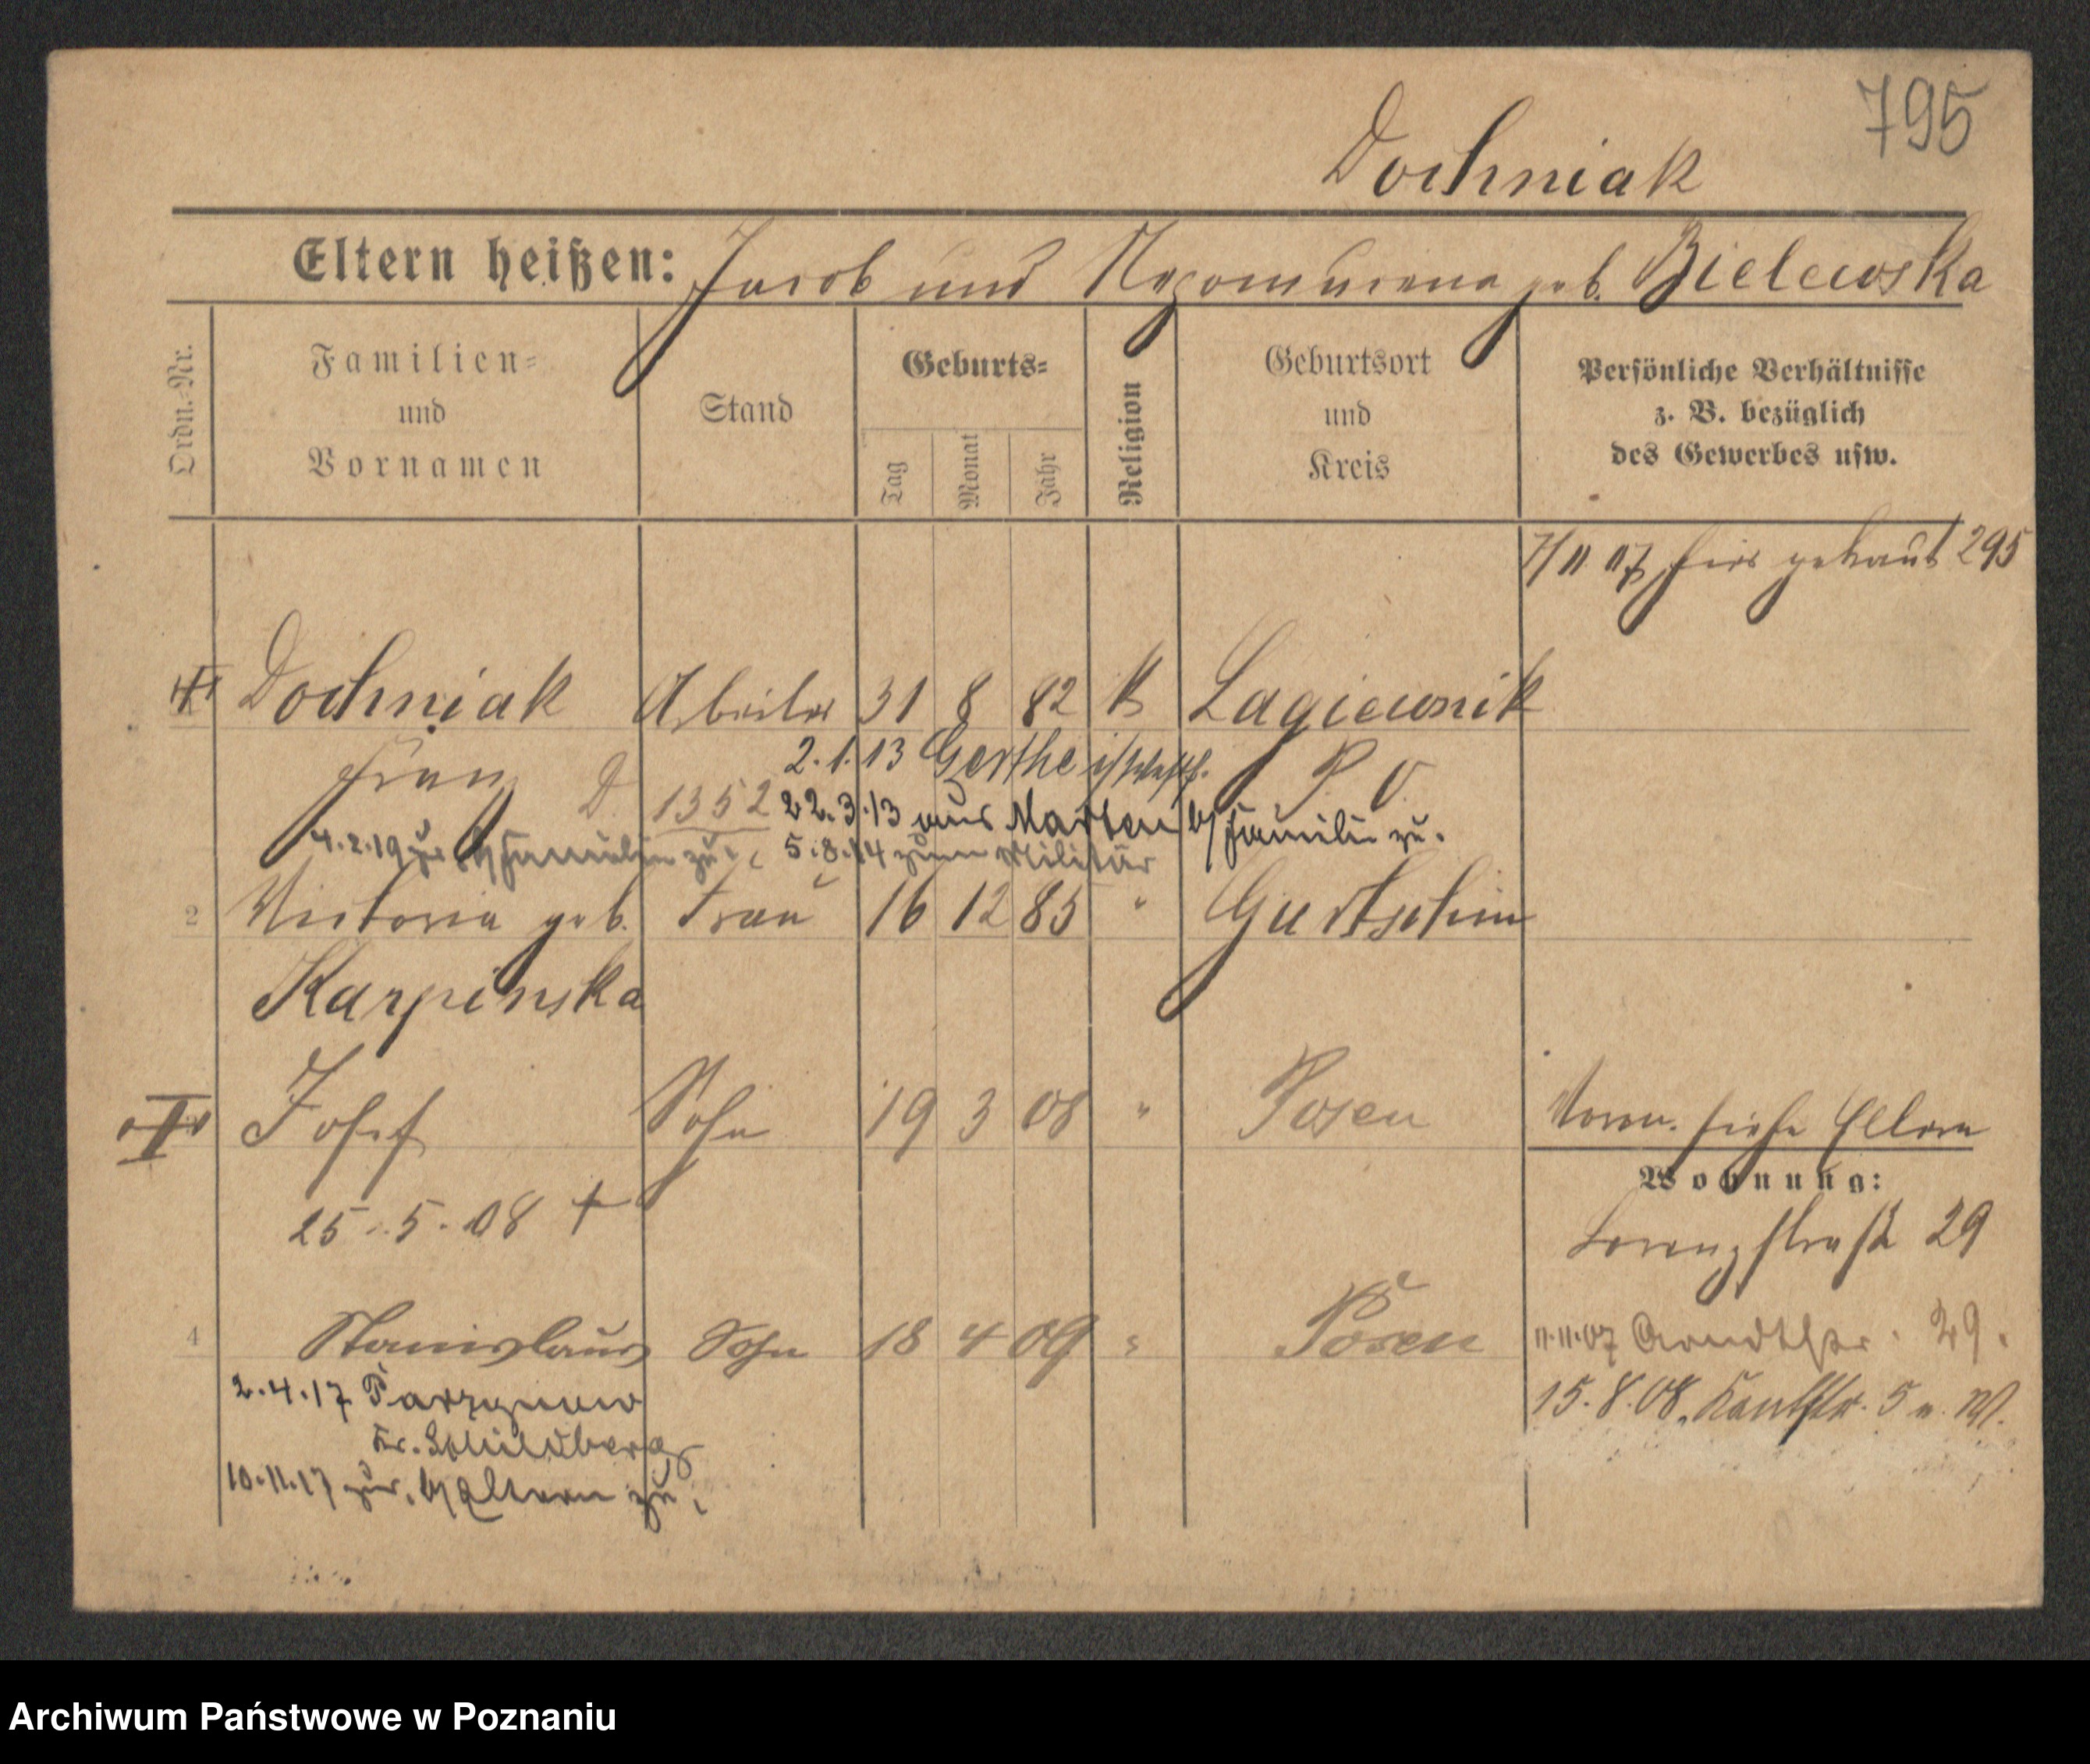 795
Dochniak
Eltern heißen: Jacob und Nepomucena geb. Bielewska
Ordn.-Nr.
Familien-
und
Vornamen
Stand
Geburts-
Tag
Monat
Jahr
Religion
Geburtsort
und
Kreis
Persönliche Verhältnisse
z. B. bezüglich
des Gewerbes usw.
7/11 07 hier getraut 295
Dochniak Arbeiter 31 8 82 K Lagiewnik
2.1.13 Gerthe i/Westf.
Franz D 1352 P. O.
22.3.13 aus Marten b/Familie zu.
4.2.19 zur b/Familie zu, 5.8.14 zum Militär
2 Victoria geb. Frau 16 12 85 " Gurtschin
Karpinska
Josef Sohn 19 3 08 " Posen
25.5.08 †
siehe Eltern
Wohnung:
Lorenzstraße 29
4 Stanislaus Sohn 18 4 09 " Posen
11.11.07 Arndtstr. 29.
15.8.08. Kantstr. 5
2.4.17 Parzynow
Kr. Schildberg
10.11.17 zur. b/Eltern zu,
Archiwum Państwowe w Poznaniu